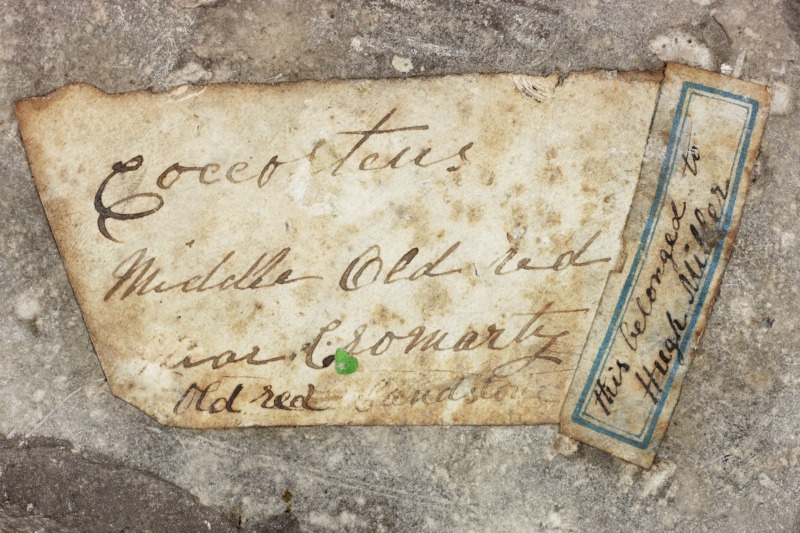 Coccosteus
Middle Old red
near Cromarty
Old red Sandstone
this belonged to
Hugh Miller